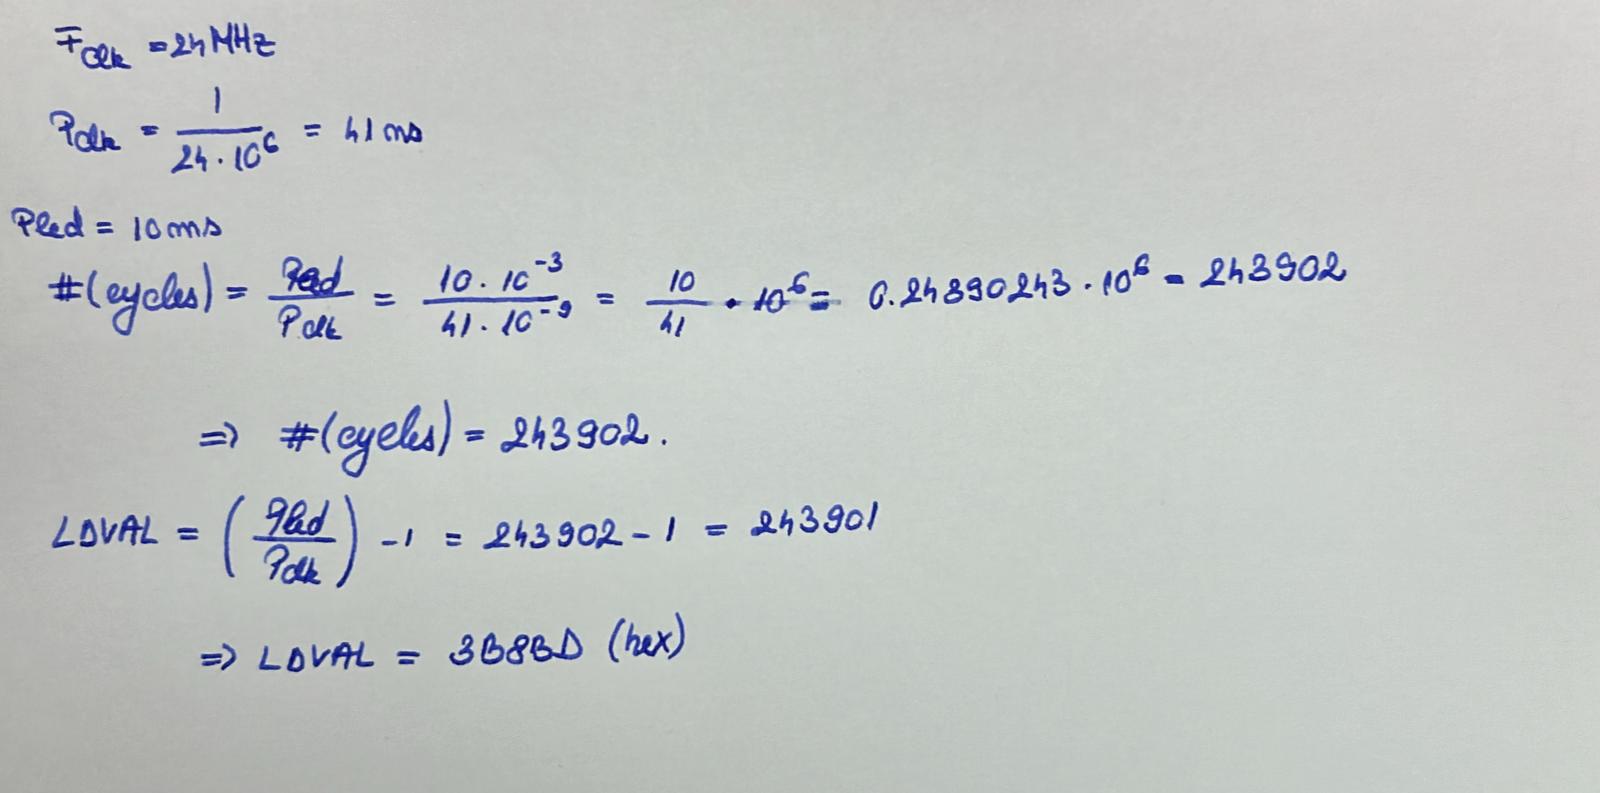 Fclk = 24 MHz
Pclk = 1 / (24 · 10^6) = 41 ns
Pled = 10 ms
#(cycles) = Pled / Pclk = (10 · 10^-3) / (41 · 10^-9) = 10/41 · 10^6 = 0.24390243 · 10^6 = 243902
=> #(cycles) = 243902.
LDVAL = (Pled / Pclk) - 1 = 243902 - 1 = 243901
=> LDVAL = 3B8BD (hex)